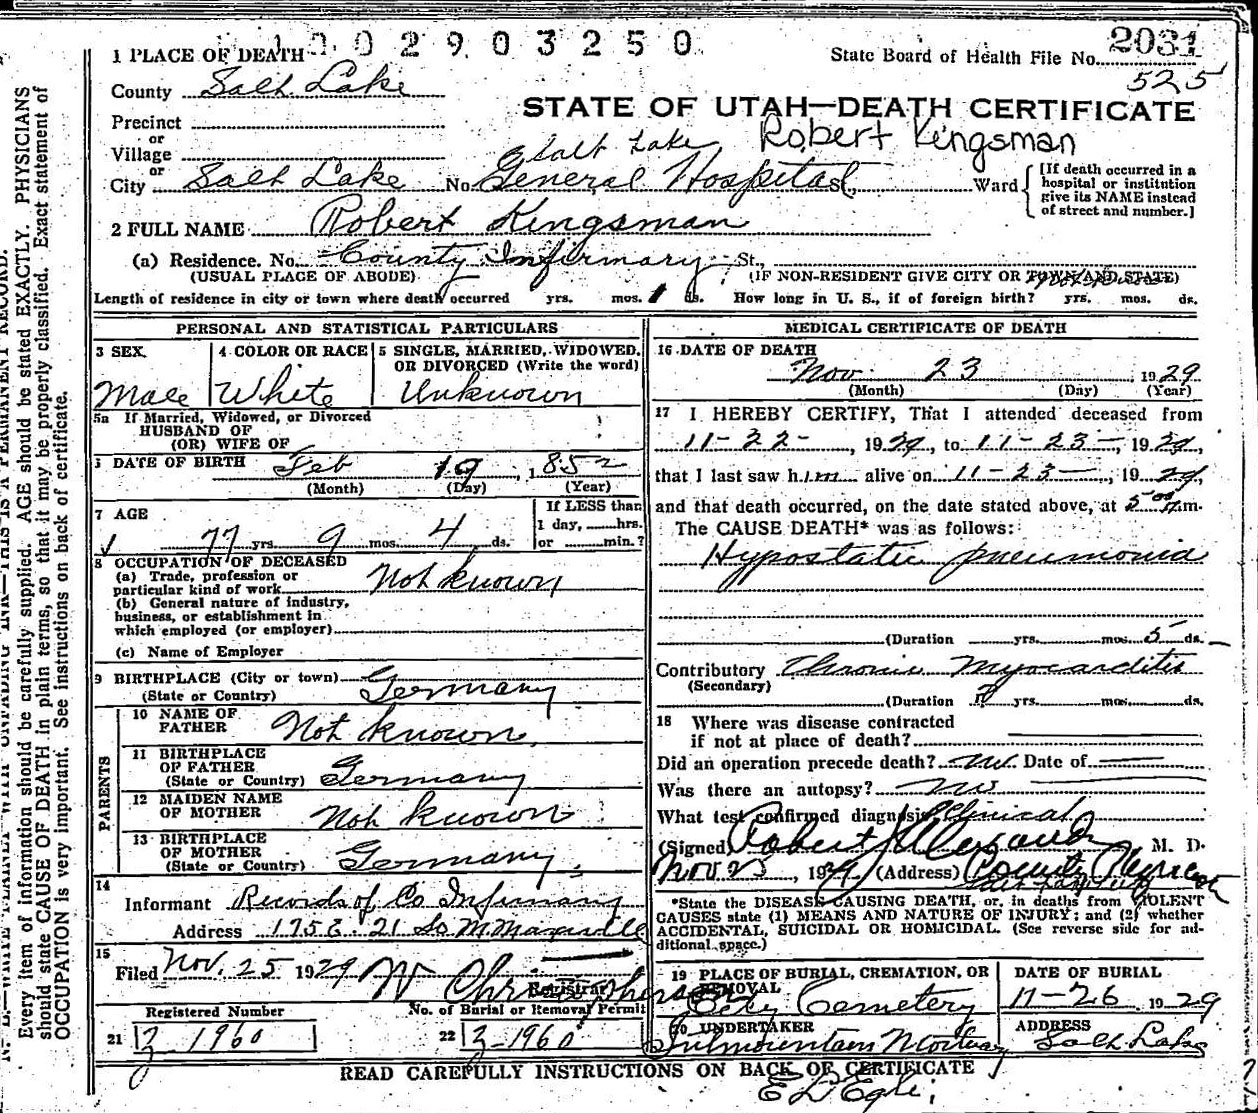 1002903250
1 PLACE OF DEATH
State Board of Health File No. 2031
525
County Salt Lake
STATE OF UTAH—DEATH CERTIFICATE
Precinct
or
Village
Salt Lake Robert Kingsman
or
City Salt Lake No. General Hospital St., Ward
[If death occurred in a hospital or institution give its NAME instead of street and number.]
2 FULL NAME Robert Kingsman
(a) Residence. No. County Infirmary St.,
(USUAL PLACE OF ABODE) (IF NON-RESIDENT GIVE CITY OR TOWN AND STATE)
Length of residence in city or town where death occurred yrs. mos. 1 ds. How long in U. S., if of foreign birth? yrs. mos. ds.
PERSONAL AND STATISTICAL PARTICULARS
3 SEX Male
4 COLOR OR RACE White
5 SINGLE, MARRIED, WIDOWED, OR DIVORCED (Write the word) Unknown
5a If Married, Widowed, or Divorced
HUSBAND OF
(OR) WIFE OF
6 DATE OF BIRTH Feb 19, 1852
(Month) (Day) (Year)
7 AGE 77 yrs. 9 mos. 4 ds.
If LESS than
1 day, hrs.
or min.?
8 OCCUPATION OF DECEASED
(a) Trade, profession or
particular kind of work Not known
(b) General nature of industry,
business, or establishment in
which employed (or employer)
(c) Name of Employer
9 BIRTHPLACE (City or town)
(State or Country) Germany
PARENTS
10 NAME OF
FATHER Not known
11 BIRTHPLACE
OF FATHER
(State or Country) Germany
12 MAIDEN NAME
OF MOTHER Not known
13 BIRTHPLACE
OF MOTHER
(State or Country) Germany
14
Informant Records of Co Infirmary
Address 175 E. 21 So
15
Filed Nov. 25 1929
Registrar
Registered Number
21 Z 1960
No. of Burial or Removal Permit
22 Z-1960
MEDICAL CERTIFICATE OF DEATH
16 DATE OF DEATH
Nov 23 1929
(Month) (Day) (Year)
17 I HEREBY CERTIFY, That I attended deceased from
11-22-, 1929, to 11-23-, 1929,
that I last saw him alive on 11-23-, 1929,
and that death occurred, on the date stated above, at 5 m.
The CAUSE DEATH* was as follows:
Hypostatic pneumonia
(Duration yrs. mos. 5 ds.
Contributory Chronic Myocarditis
(Secondary)
(Duration ? yrs. mos. ds.
18 Where was disease contracted
if not at place of death?
Did an operation precede death? no Date of
Was there an autopsy? no
What test confirmed diagnosis Clinical
(Signed) Robert M. D.
Nov 25, 1929 (Address) County
*State the DISEASE CAUSING DEATH, or, in deaths from VIOLENT
CAUSES state (1) MEANS AND NATURE OF INJURY; and (2) whether
ACCIDENTAL, SUICIDAL OR HOMICIDAL. (See reverse side for ad-
ditional space.)
19 PLACE OF BURIAL, CREMATION, OR
REMOVAL
City Cemetery
DATE OF BURIAL
11-26 1929
20 UNDERTAKER
Mortuary
ADDRESS
Salt Lake
READ CAREFULLY INSTRUCTIONS ON BACK OF CERTIFICATE
Every item of information should be carefully supplied. AGE should be stated EXACTLY. PHYSICIANS
should state CAUSE OF DEATH in plain terms, so that it may be properly classified. Exact statement of
OCCUPATION is very important. See instructions on back of certificate.